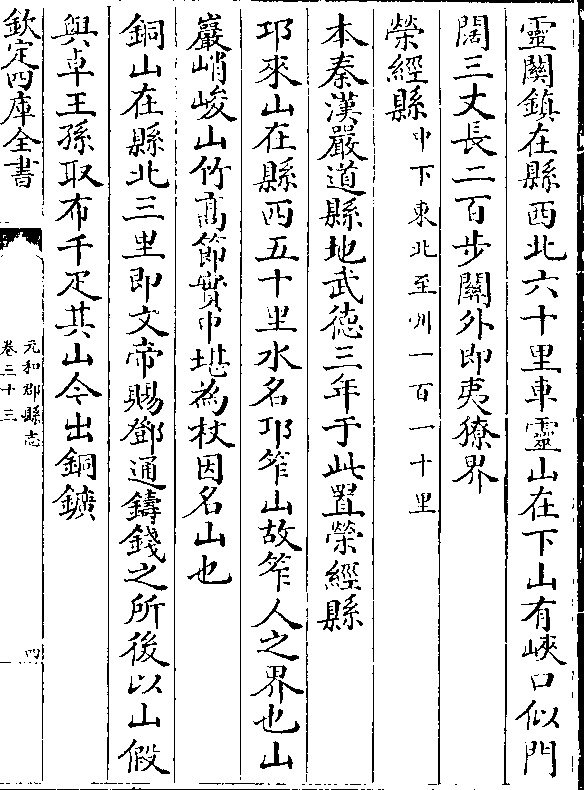 靈關鎮在縣西北六十里車靈山在下山有峽口似門
闊三丈長二百步關外即夷獠界
榮經縣中下東北至州一百一十里
本秦漢嚴道縣地武德三年于此置榮經縣
邛來山在縣西五十里水名邛筰山故筰人之界也山
巖峭峻山竹髙節實中堪為杖因名山也
銅山在縣北三里即文帝賜鄧通鑄錢之所後以山假
與卓王孫取布千疋其山今出銅鑛
欽定四庫全書
元和郡縣志
卷三十三
四